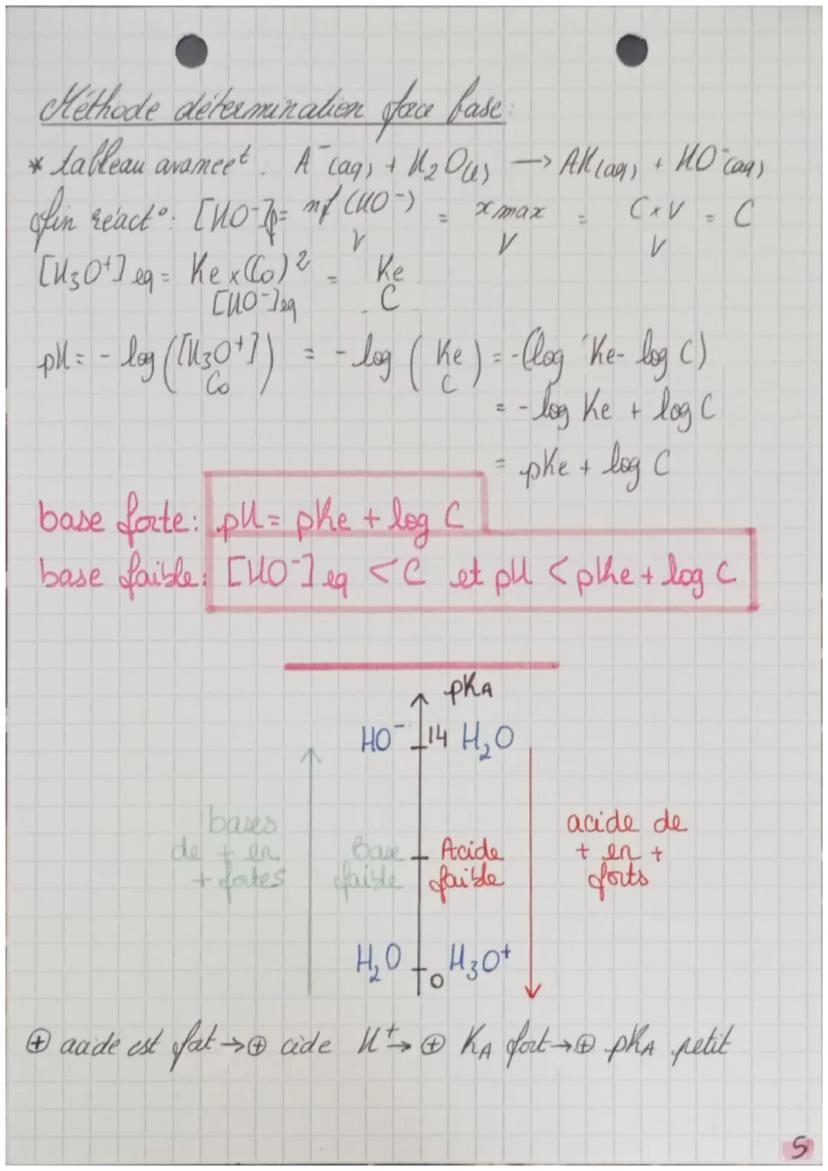 Méthode détermination force base:
* tableau avancet : A⁻(aq) + H₂O(l) → AH(aq) + HO⁻(aq)
fin réact°: [HO⁻]f = nf(HO⁻)/V = xmax/V = C×V/V = C
[H₃O⁺]eq = Ke×(C₀)²/[HO⁻]eq = Ke/C
pH = - log([H₃O⁺]/C₀) = - log(Ke/C) = -(log Ke - log C)
= - log Ke + log C
= pKe + log C
base forte: pH = pKe + log C
base faible: [HO⁻]eq < C et pH < pKe + log C
pKA
HO⁻ 14 H₂O
bases de + en + fortes
Base faible
Acide faible
acide de + en + forts
H₂O 0 H₃O⁺
⊕ acide est fort → ⊕ cède H⁺ → ⊕ KA fort → ⊕ pKA petit
5